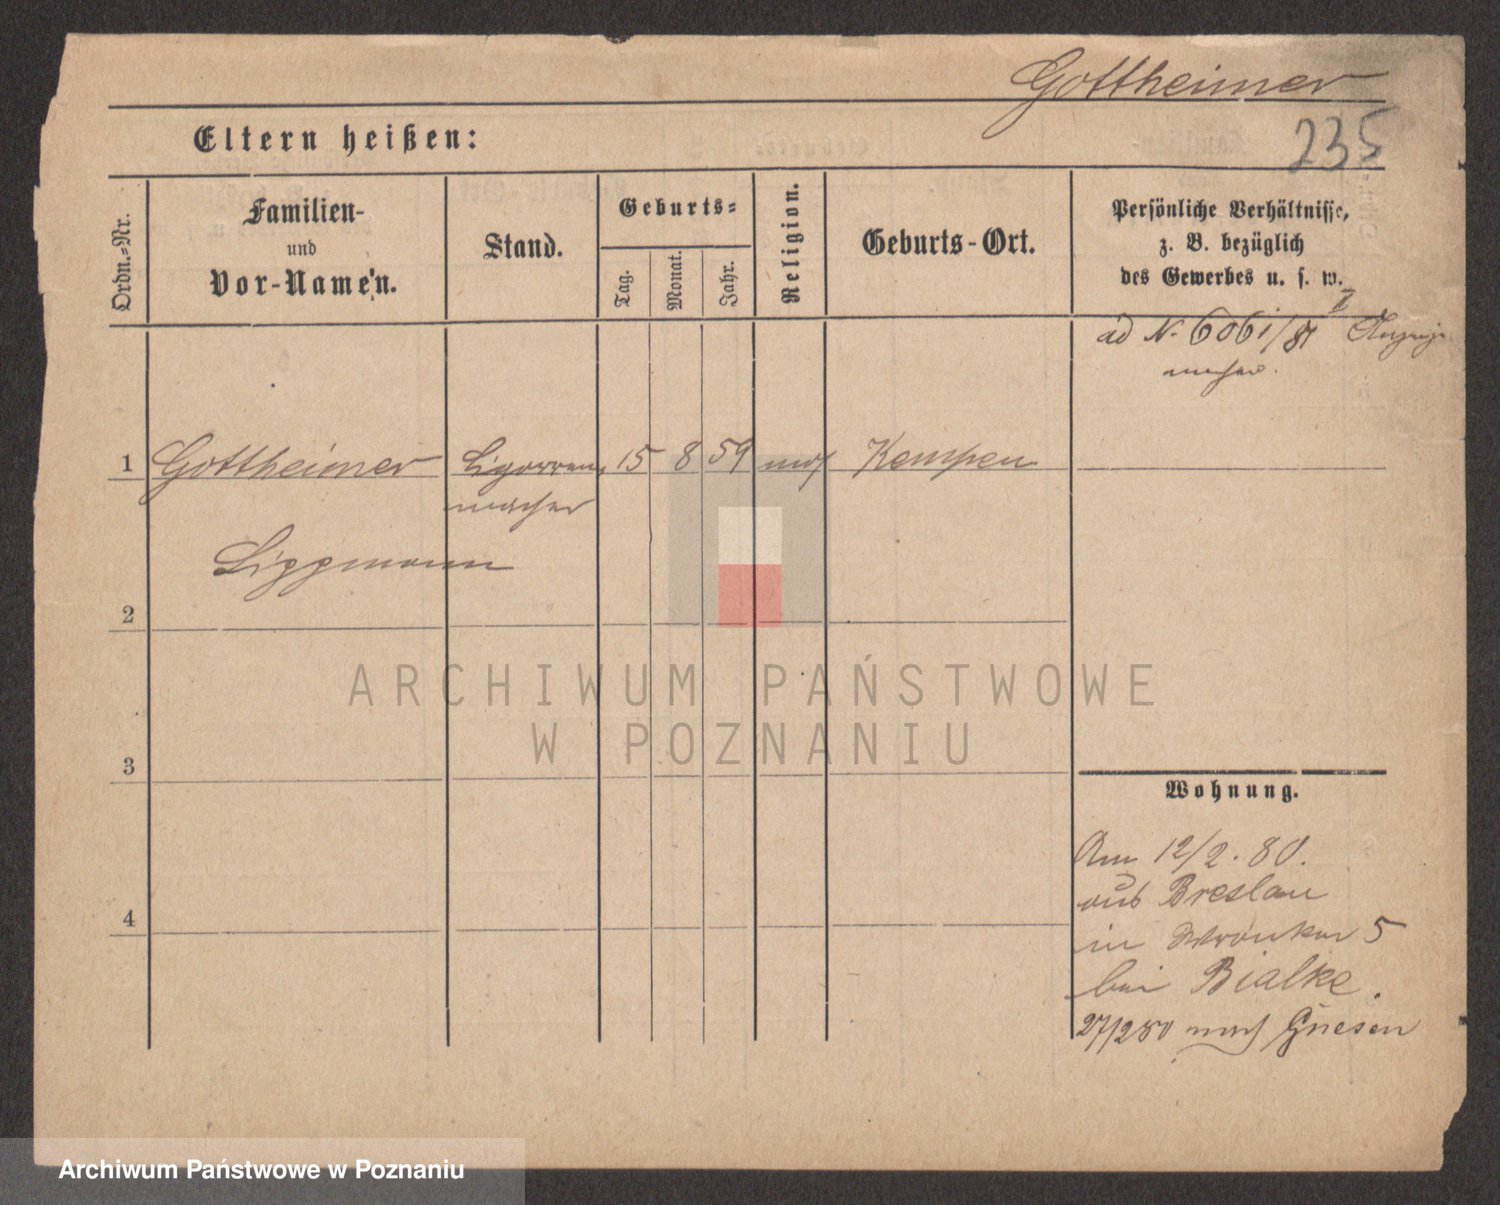 Gottheimer
235
Eltern heißen:
Ordn.-Nr.
Familien-
und
Vor-Namen.
Stand.
Geburts-
Tag.
Monat.
Jahr.
Religion.
Geburts-Ort.
Persönliche Verhältnisse,
z. B. bezüglich
des Gewerbes u. s. w.
ad N. 6061/81 II
1 Gottheimer Cigarren 15 8 59 mos Kempen
macher
Lippmann
2
ARCHIWUM PAŃSTWOWE
W POZNANIU
3
Wohnung.
Am 12/2. 80.
aus Breslau
in Wronker 5
bei Bialke.
4
27/2 80 nach Gnesen
Archiwum Państwowe w Poznaniu